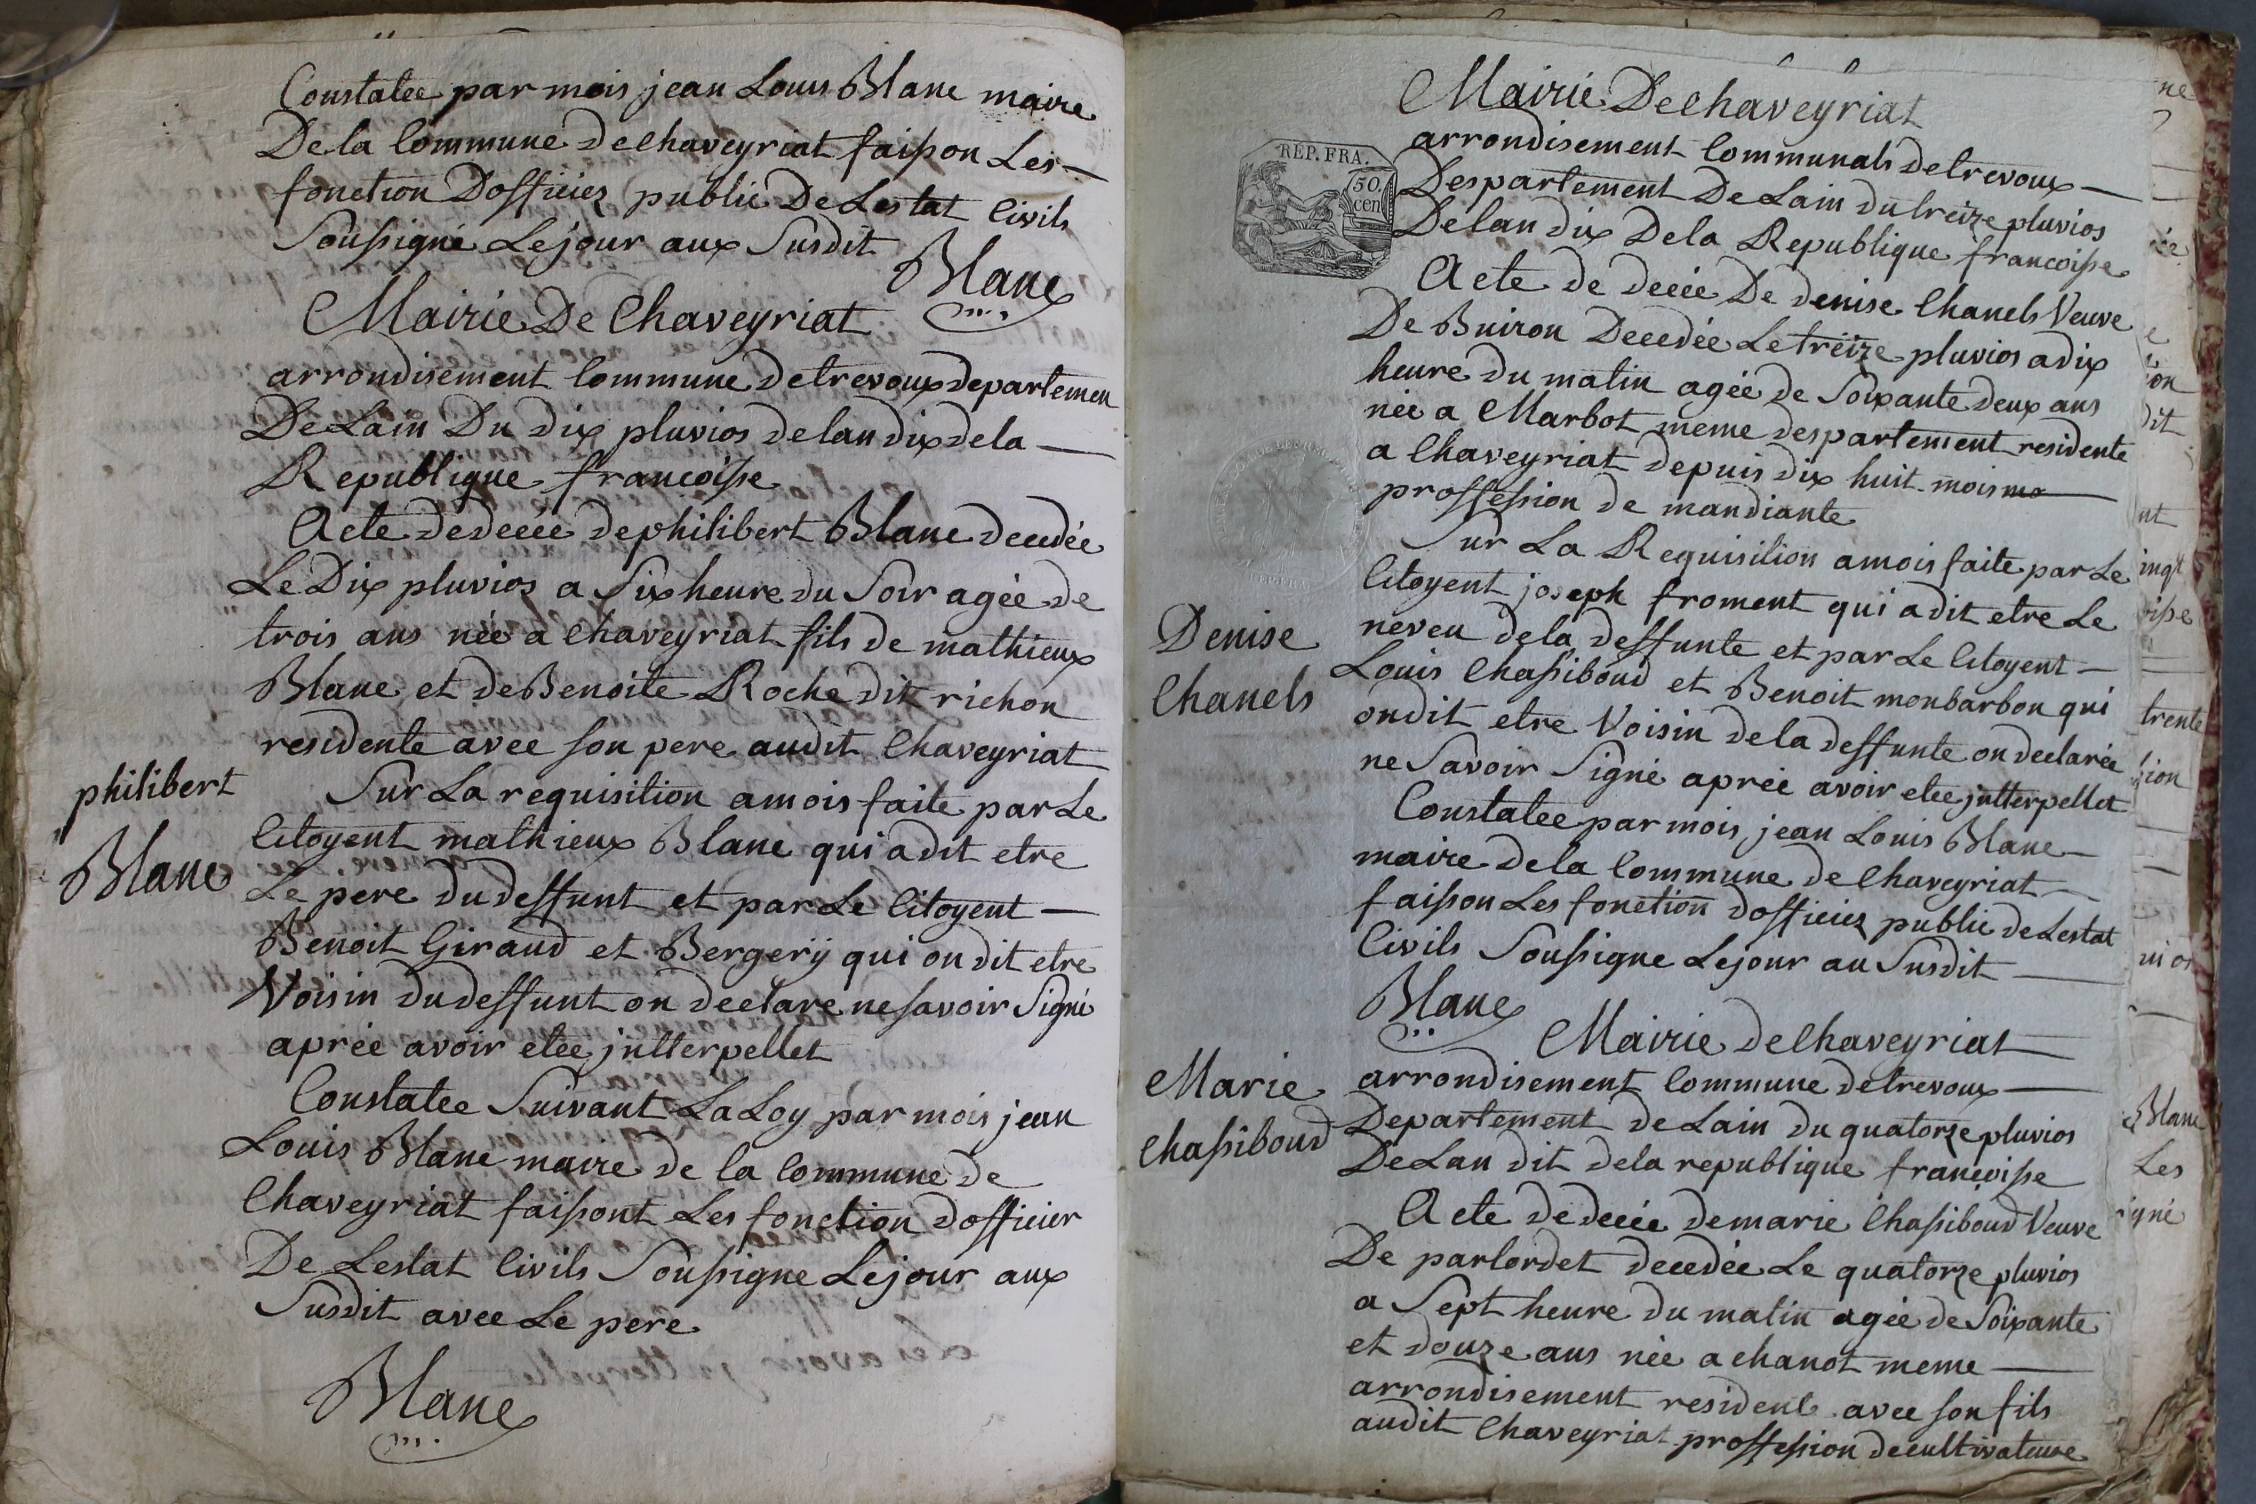 Constatee par mois jean Louis Blanc maire
De la Commune de Chaveyriat faisson Les
fonction D'officiez public De Lestat Civils
Soussigné Le jour aux Susdit
Blanc
Mairie De Chaveyriat
arrondisement Commune de trevoux departemen
De Lain Du dix pluvios de lan dix de la
Republique francoisse
Acte de decée de philibert Blanc decedée
Le Dix pluvios a Six heure du Soir agée de
trois ans née a Chaveyriat fils de mathieux
Blanc et de Benoite Roche dit richon
residente avec son pere audit Chaveyriat
philibert
Blanc
Sur La requisition a mois faite par Le
Citoyent mathieux Blanc qui a dit etre
Le pere du deffunt et par Le Citoyent
Benoit Giraud et Bergerÿ qui on dit etre
Voisin du deffunt on declare ne savoir Signé
aprée avoir etee jntterpellet
Constatee Suivant La Loy par mois jean
Louis Blanc maire de la Commune de
Chaveyriat faissont Les fonction dofficier
De Lestat Civils Soussigne Le jour aux
Susdit avec Le pere
Blanc
Mairie De Chaveyriat
REP. FRA.
50
cen
arrondisement Communals de trevoux
Despartement De Lain du treize pluvios
De lan dix De la Republique francoisse
Acte de decée De denise Chanels Veuve
De Buiron Decedée Le treize pluvios a dix
heure du matin agée de Soixante deux ans
née a Marbot meme despartement residente
a Chaveyriat depuis dix huit mois
proffession de mandiante
Sur La Requisition a mois faite par Le
Citoyent joseph froment qui a dit etre Le
neveu de la deffunte et par Le Citoyent
Denise
Chanels
Louis Chassiboud et Benoit monbarbon qui
on dit etre Voisin de la deffunte on declarée
ne Savoir Signé aprée avoir etee jntterpellet
Constatee par mois jean Louis Blanc
maire de la Commune de Chaveyriat
faisson Les fonction dofficiez public de Lestat
Civils Soussigne Le jour au Susdit
Blanc
Mairie de Chaveyriat
Marie
Chassiboud
arrondisement Commune de trevoux
Departement de Lain du quatorze pluvios
De Lan dit de la republique francoisse
Acte de decée de marie Chassiboud Veuve
De parlordet decedée Le quatorze pluvios
a Sept heure du matin agée de Soixante
et douze ans née a chanot meme
arrondisement resident avec son fils
audit Chaveyriat proffession de cultivateuse